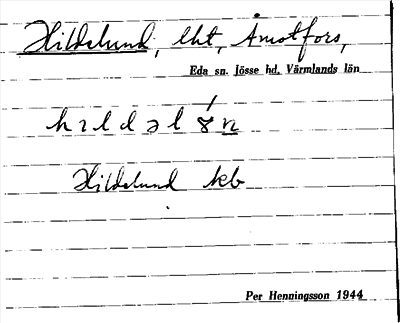 Hildelund, lht, Åmotfors,
Eda sn. Jösse hd. Värmlands län
Hildelund kb
Per Henningsson 1944